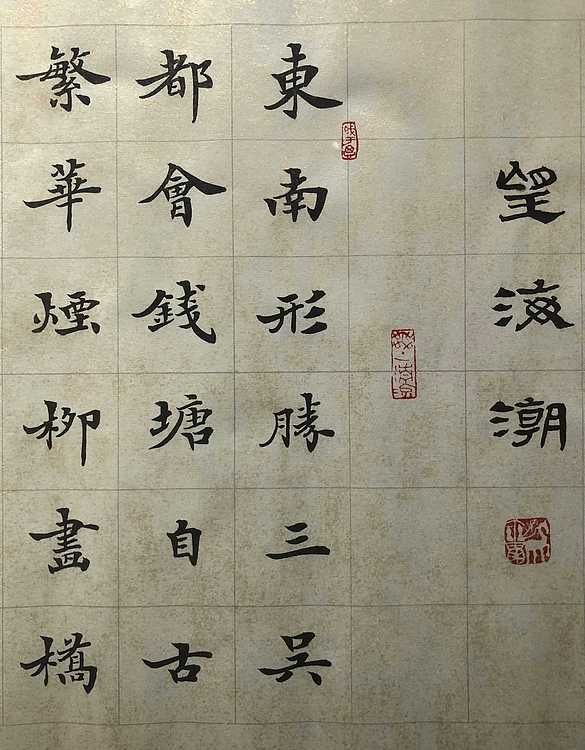 望海潮
東南形勝三吳
都會錢塘自古
繁華煙柳畫橋